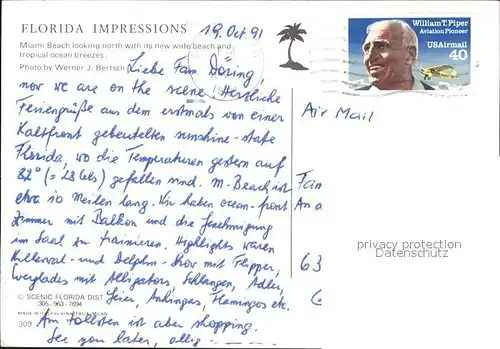 FLORIDA IMPRESSIONS
19. Oct 91
Miami Beach looking north with its new wide beach and
tropical ocean breezes.
Photo by Werner J. Bertsch
Liebe Fam. Döring,
now we are on the scene! Herzliche
Feriengrüße aus dem erstmals von einer
Kaltfront gebeutelten sunshine-state
Florida, wo die Temperaturen gestern auf
82° (= 28 Cels) gefallen sind. M-Beach ist
etwa 10 Meilen lang. Wir haben ocean-front
Zimmer mit Balkon und die Genehmigung
im Saal zu trainieren. Highlights waren
Killerwal- und Delphin-Show mit Flipper,
Everglades mit Alligators, Schlangen, Adler,
Geier, Anhingas, Flamingos etc.
Am tollsten ist aber shopping.
See you later, allig
© SCENIC FLORIDA DIST
305-963-7694
MADE IN ITALY by KINA ITALIA-MILAN
309
William T. Piper
Aviation Pioneer
USAirmail
40
Air Mail
Fam
An d
63
privacy protection
Datenschutz